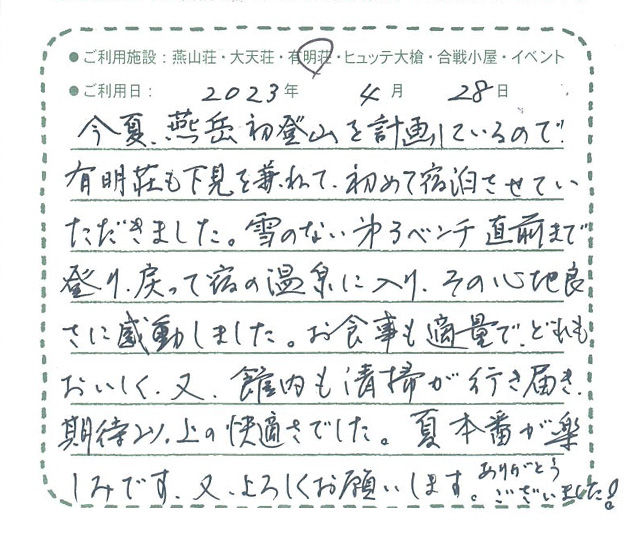 ●ご利用施設：燕山荘・大天荘・有明荘・ヒュッテ大槍・合戦小屋・イベント
●ご利用日： 2023年 4月 28日
今夏、燕岳初登山を計画しているので
有明荘も下見を兼ねて、初めて宿泊させてい
ただきました。雪のない第3ベンチ直前まで
登り、戻って宿の温泉に入り、その心地良
さに感動しました。お食事も適量で、どれも
おいしく、又、館内も清掃が行き届き、
期待以上の快適さでした。夏本番が楽
しみです、又、よろしくお願いします。ありがとう
ございました!